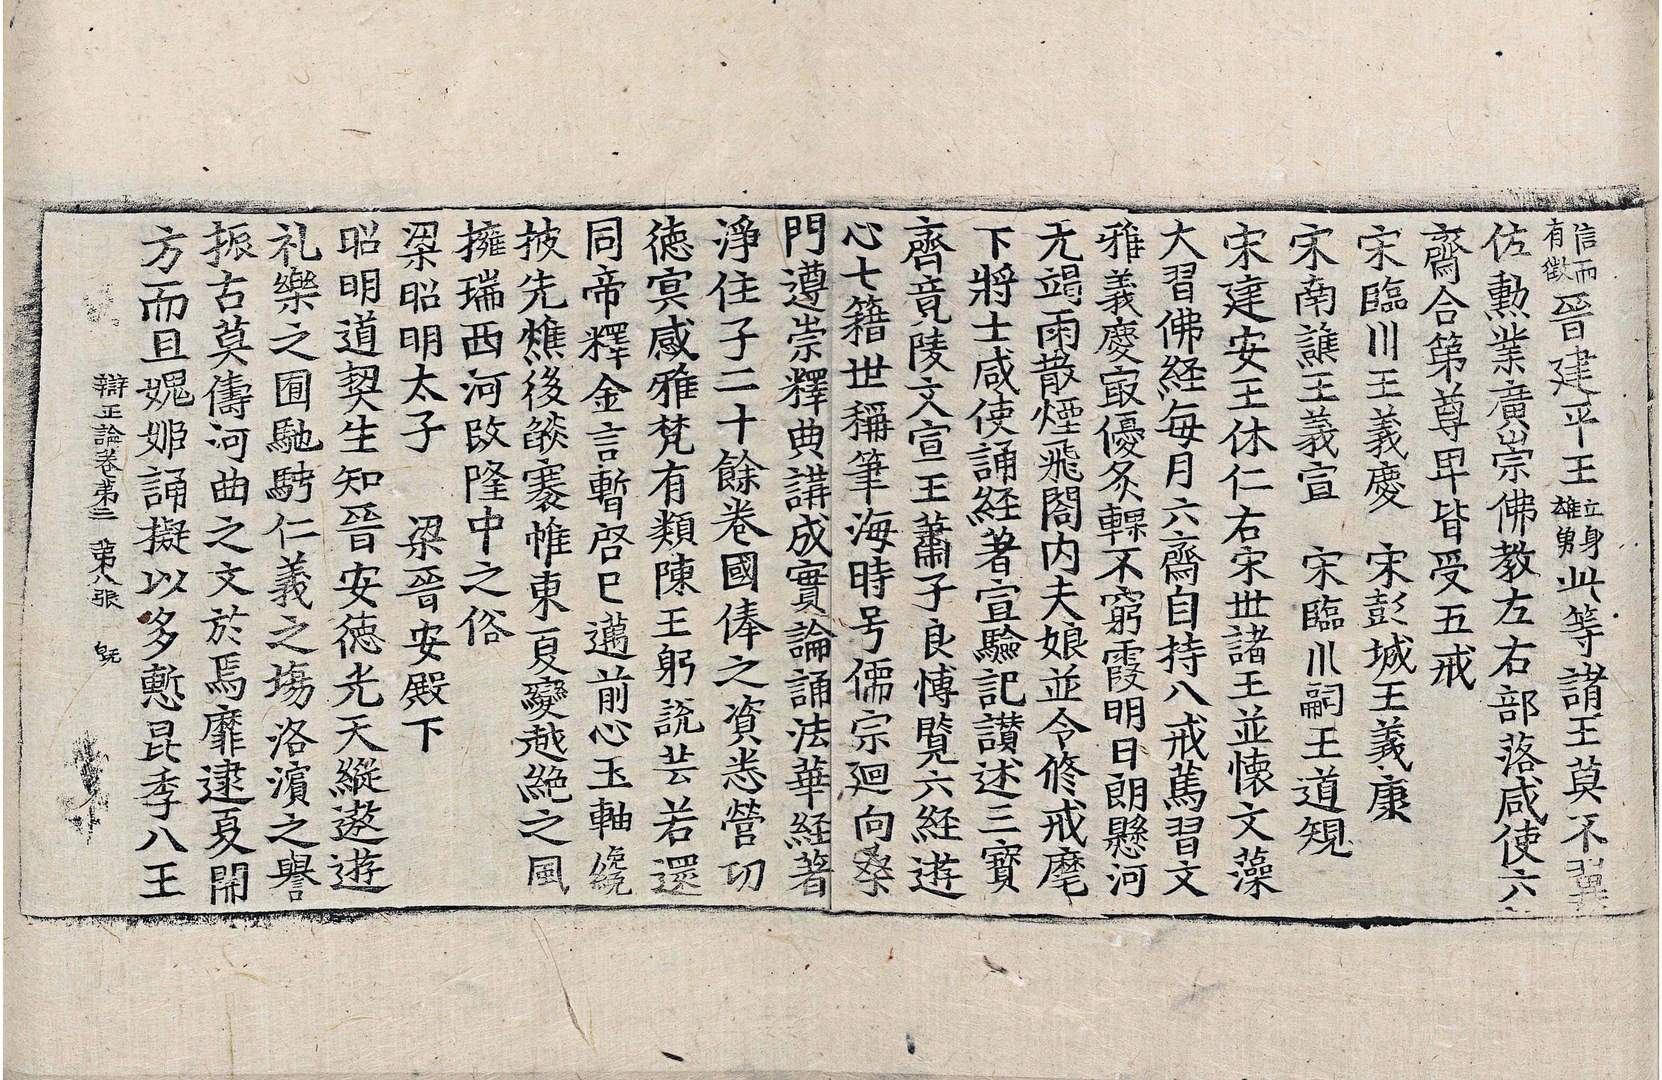 信而有徵晉建平王立身雄勇此等諸王莫不翼
佐勲業廣崇佛教左右部落咸使六
齋合第尊卑皆受五戒
宋臨川王義慶　宋彭城王義康
宋南譙王義宣　宋臨川嗣王道䂓
宋建安王休仁右宋世諸王並懷文藻
大習佛経每月六齋自持八戒篤習文
雅義慶寂優炙輠不窮霞明日朗懸河
无竭雨散煙飛閤内夫娘並令修戒麾
下將士咸使誦経著宣驗記讃述三寶
齊竟陵文宣王蕭子良愽覽六経遊
心七籍世稱筆海時号儒宗廻向桑
門遵崇釋典講成實論誦法華経著
淨住子二十餘卷國俸之資悉營功
德冥感雅梵有類陳王躬說芸若還
同帝釋金言暫啓巳邁前心玉軸纔
披先燋後燄褰帷東夏變越絕之風
擁瑞西河改隆中之俗
梁昭明太子　梁晉安殿下
昭明道契生知晉安德光天縱遨遊
礼樂之囿馳騁仁義之塲洛濱之譽
振古莫儔河曲之文於焉靡逮夏開
方而且媿姬誦擬以多慙昆季八王
辯正論卷第三　第八張　㲋